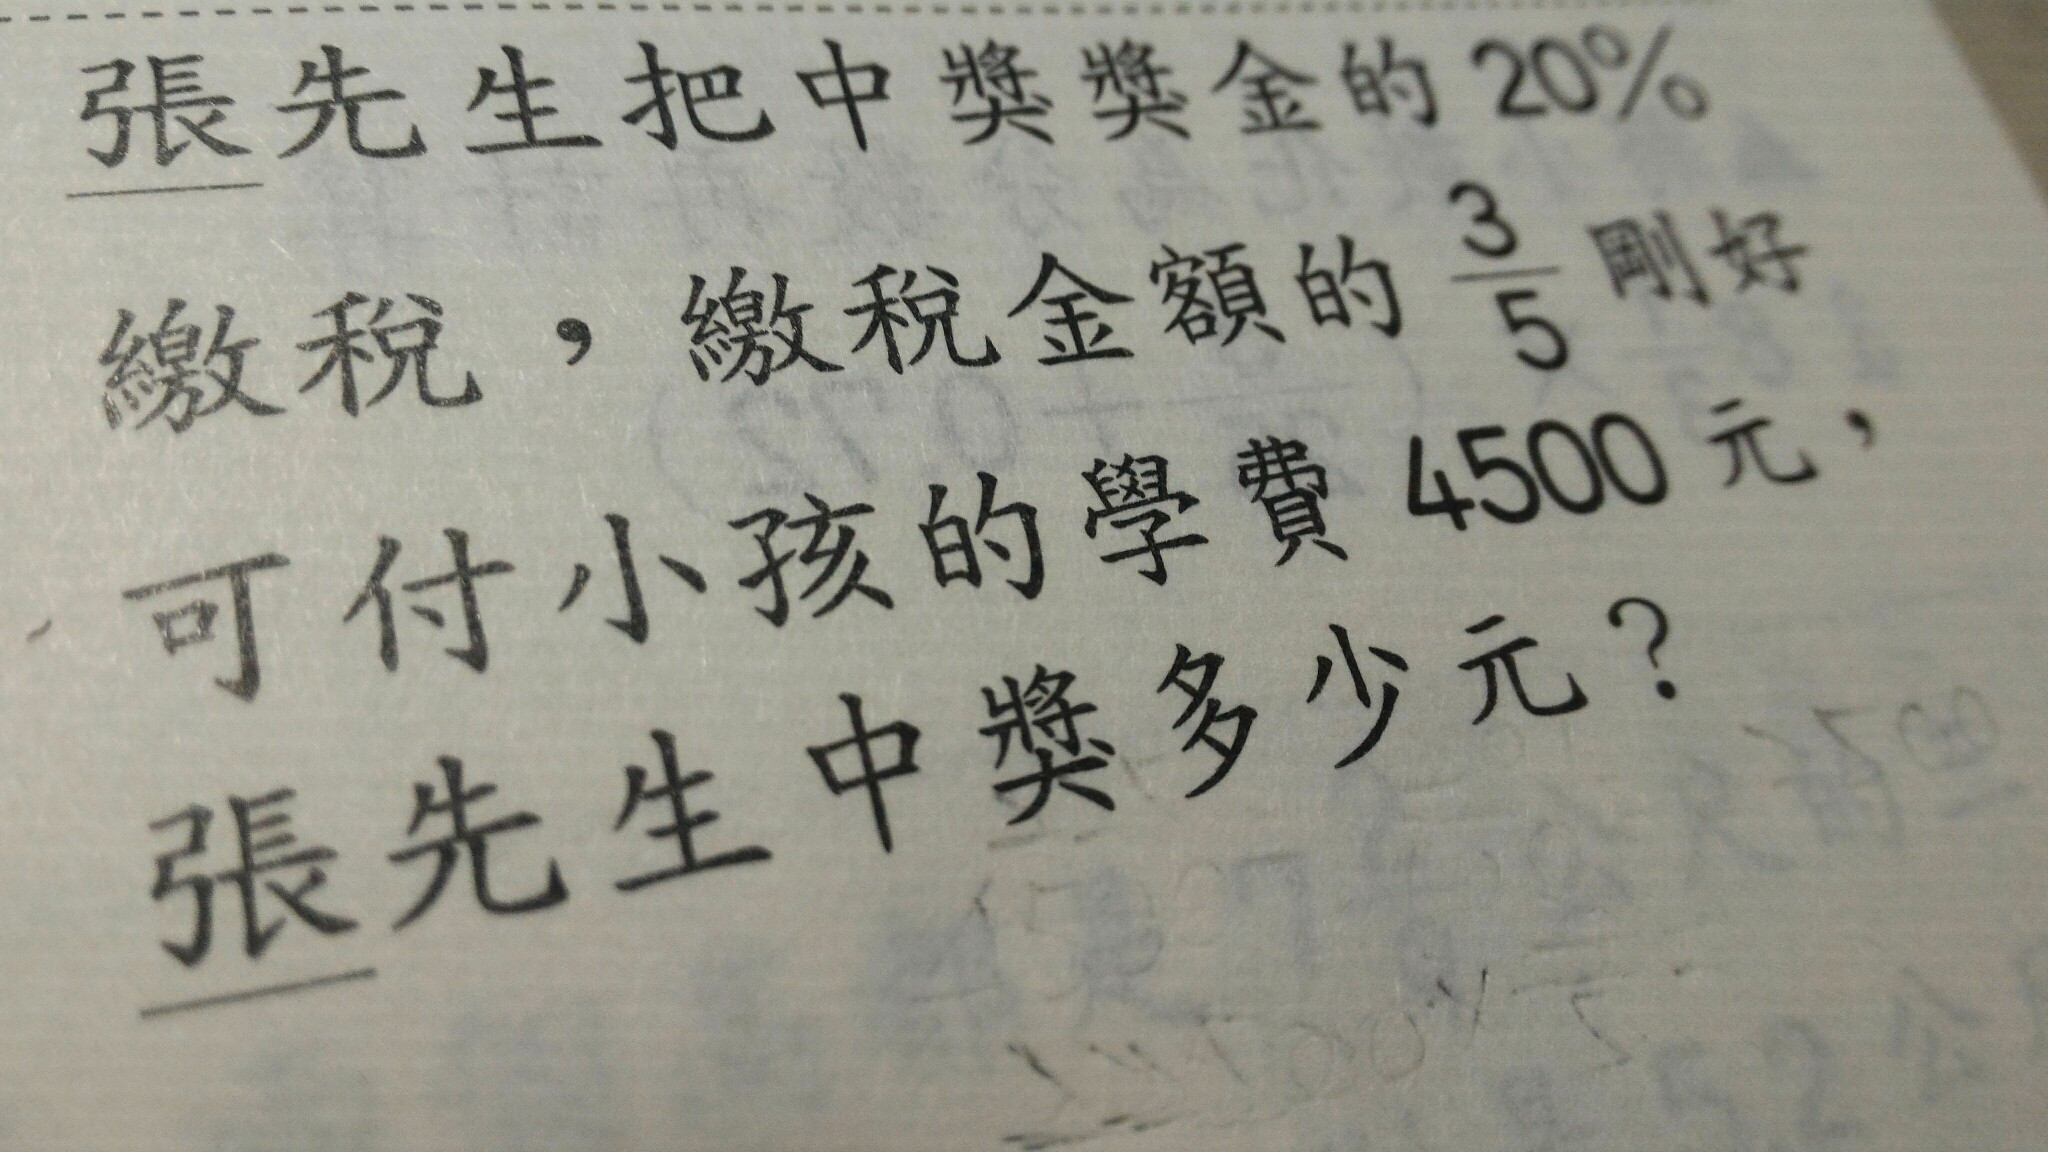 張先生把中獎獎金的20%
繳稅，繳稅金額的3/5剛好
可付小孩的學費4500元，
張先生中獎多少元？